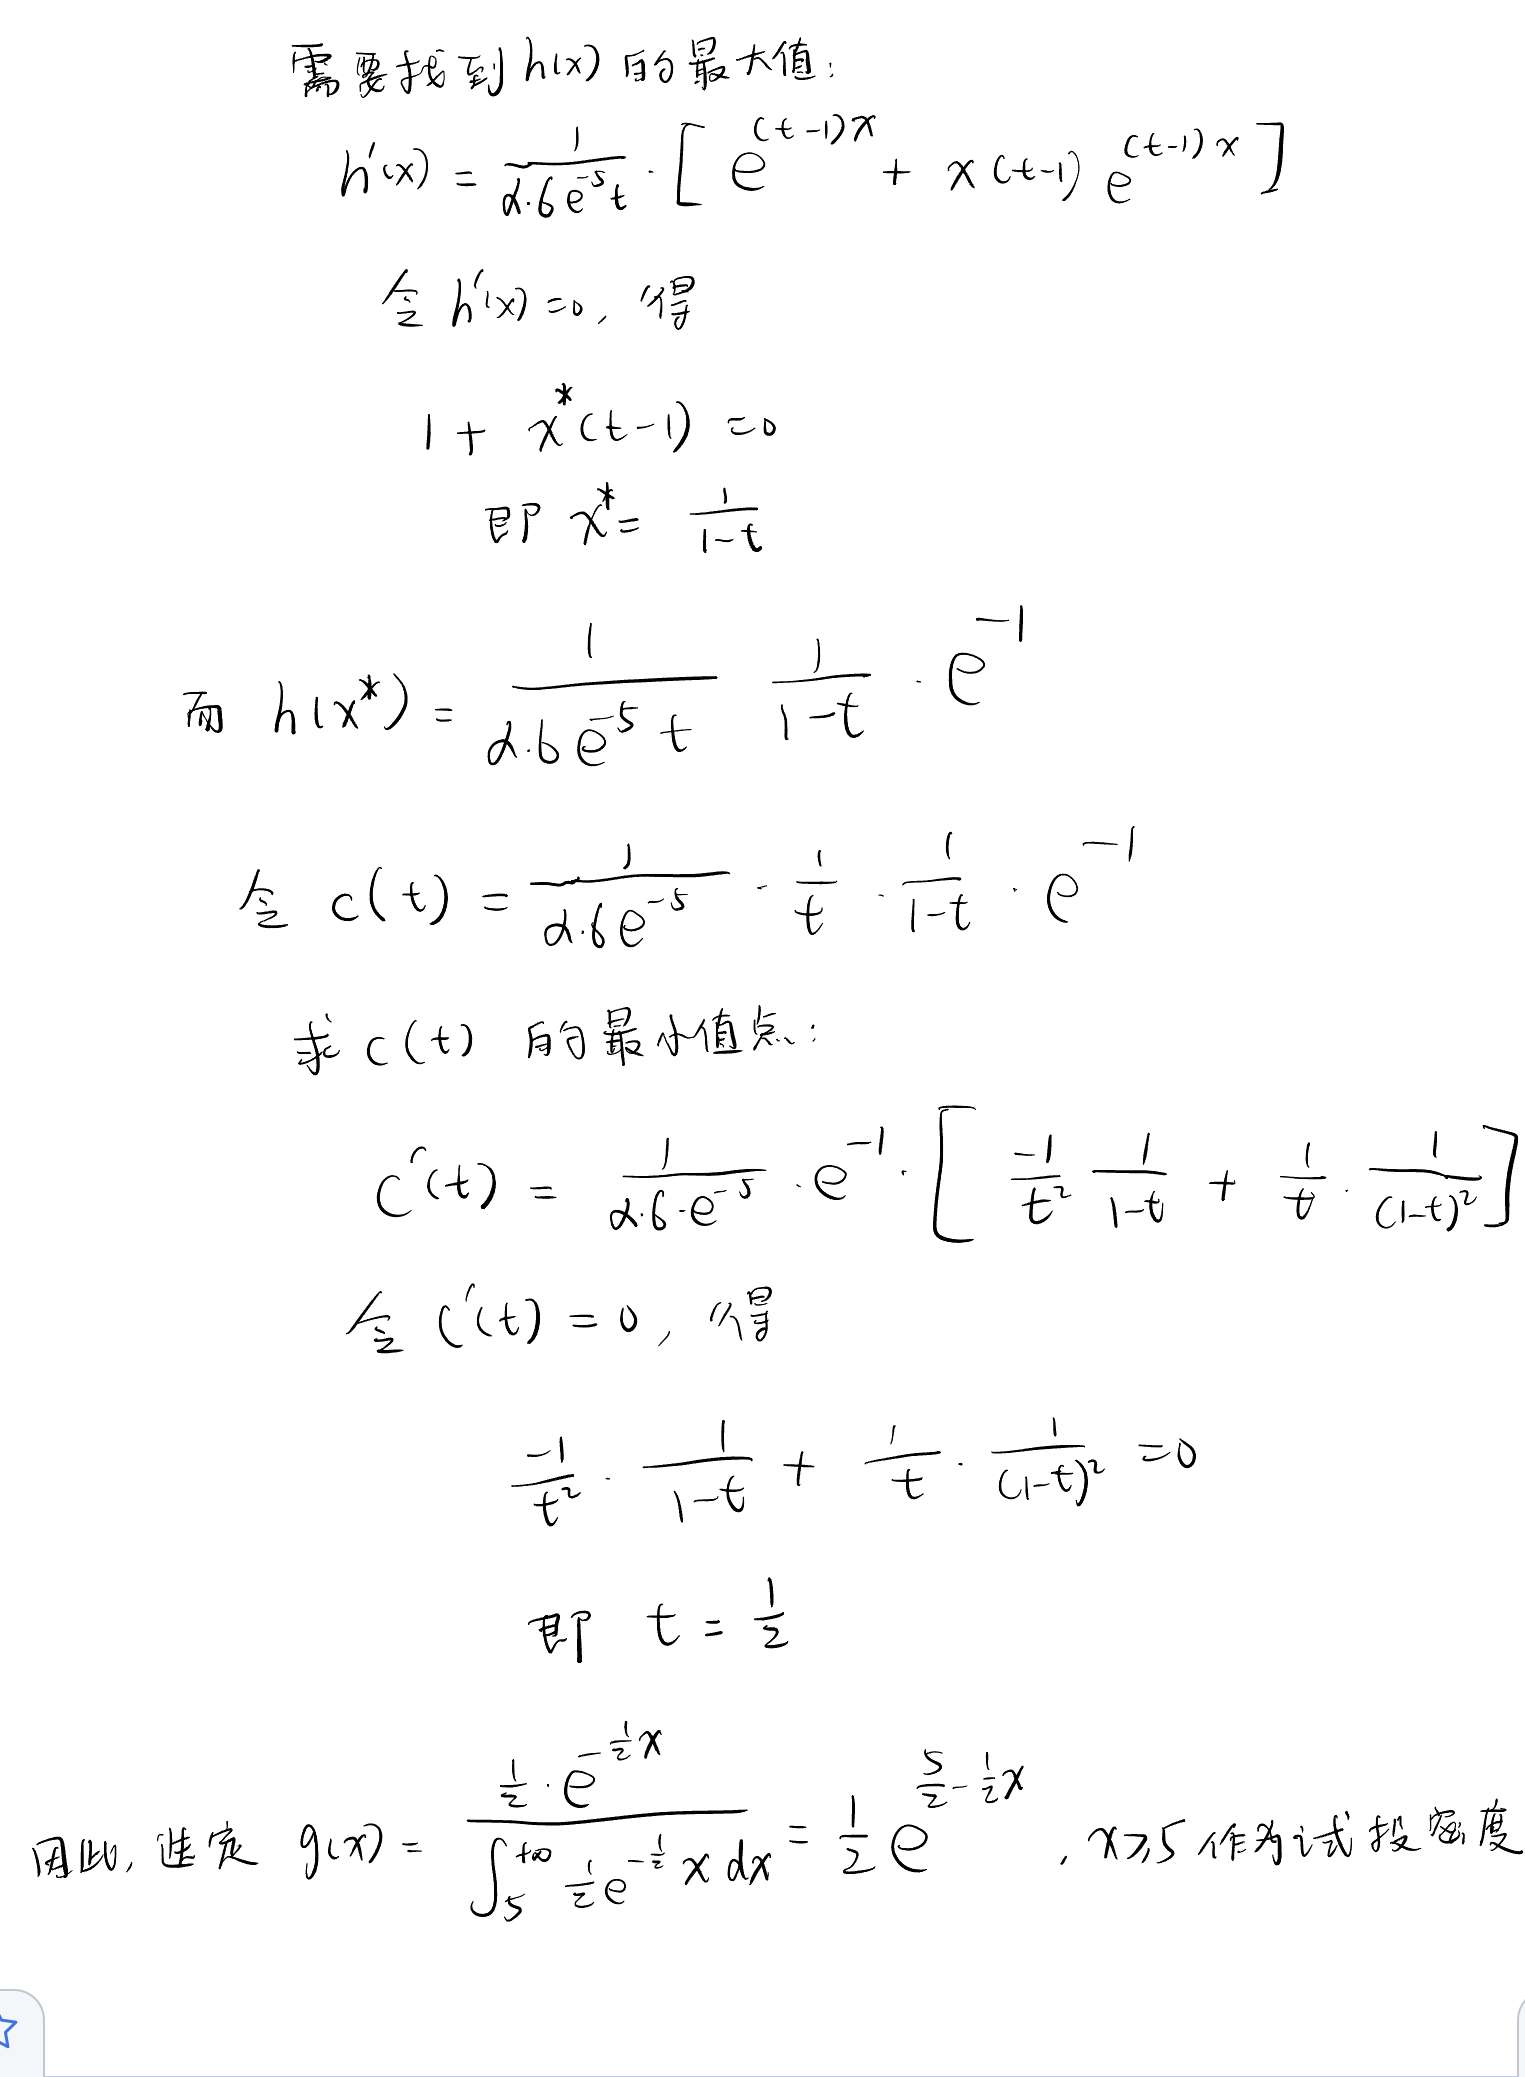 需要找到 h(x) 的最大值：
h'(x) = \frac{1}{2.6e^{-5}t} · [ e^{(t-1)x} + x(t-1) e^{(t-1)x} ]
令 h'(x) = 0, 得
1 + x^*(t-1) = 0
即 x^* = \frac{1}{1-t}
而 h(x^*) = \frac{1}{2.6e^{-5}t} \frac{1}{1-t} · e^{-1}
令 c(t) = \frac{1}{2.6e^{-5}} · \frac{1}{t} · \frac{1}{1-t} · e^{-1}
求 c(t) 的最小值点：
c'(t) = \frac{1}{2.6·e^{-5}} · e^{-1} · [ \frac{-1}{t^2} \frac{1}{1-t} + \frac{1}{t} · \frac{1}{(1-t)^2} ]
令 c'(t) = 0, 得
\frac{-1}{t^2} · \frac{1}{1-t} + \frac{1}{t} · \frac{1}{(1-t)^2} = 0
即 t = \frac{1}{2}
因此, 选定 g(x) = \frac{\frac{1}{2} · e^{-\frac{1}{2}x}}{\int_5^{+∞} \frac{1}{2} e^{-\frac{1}{2}x} dx} = \frac{1}{2} e^{\frac{5}{2}-\frac{1}{2}x}, x⩾5 作为试投密度